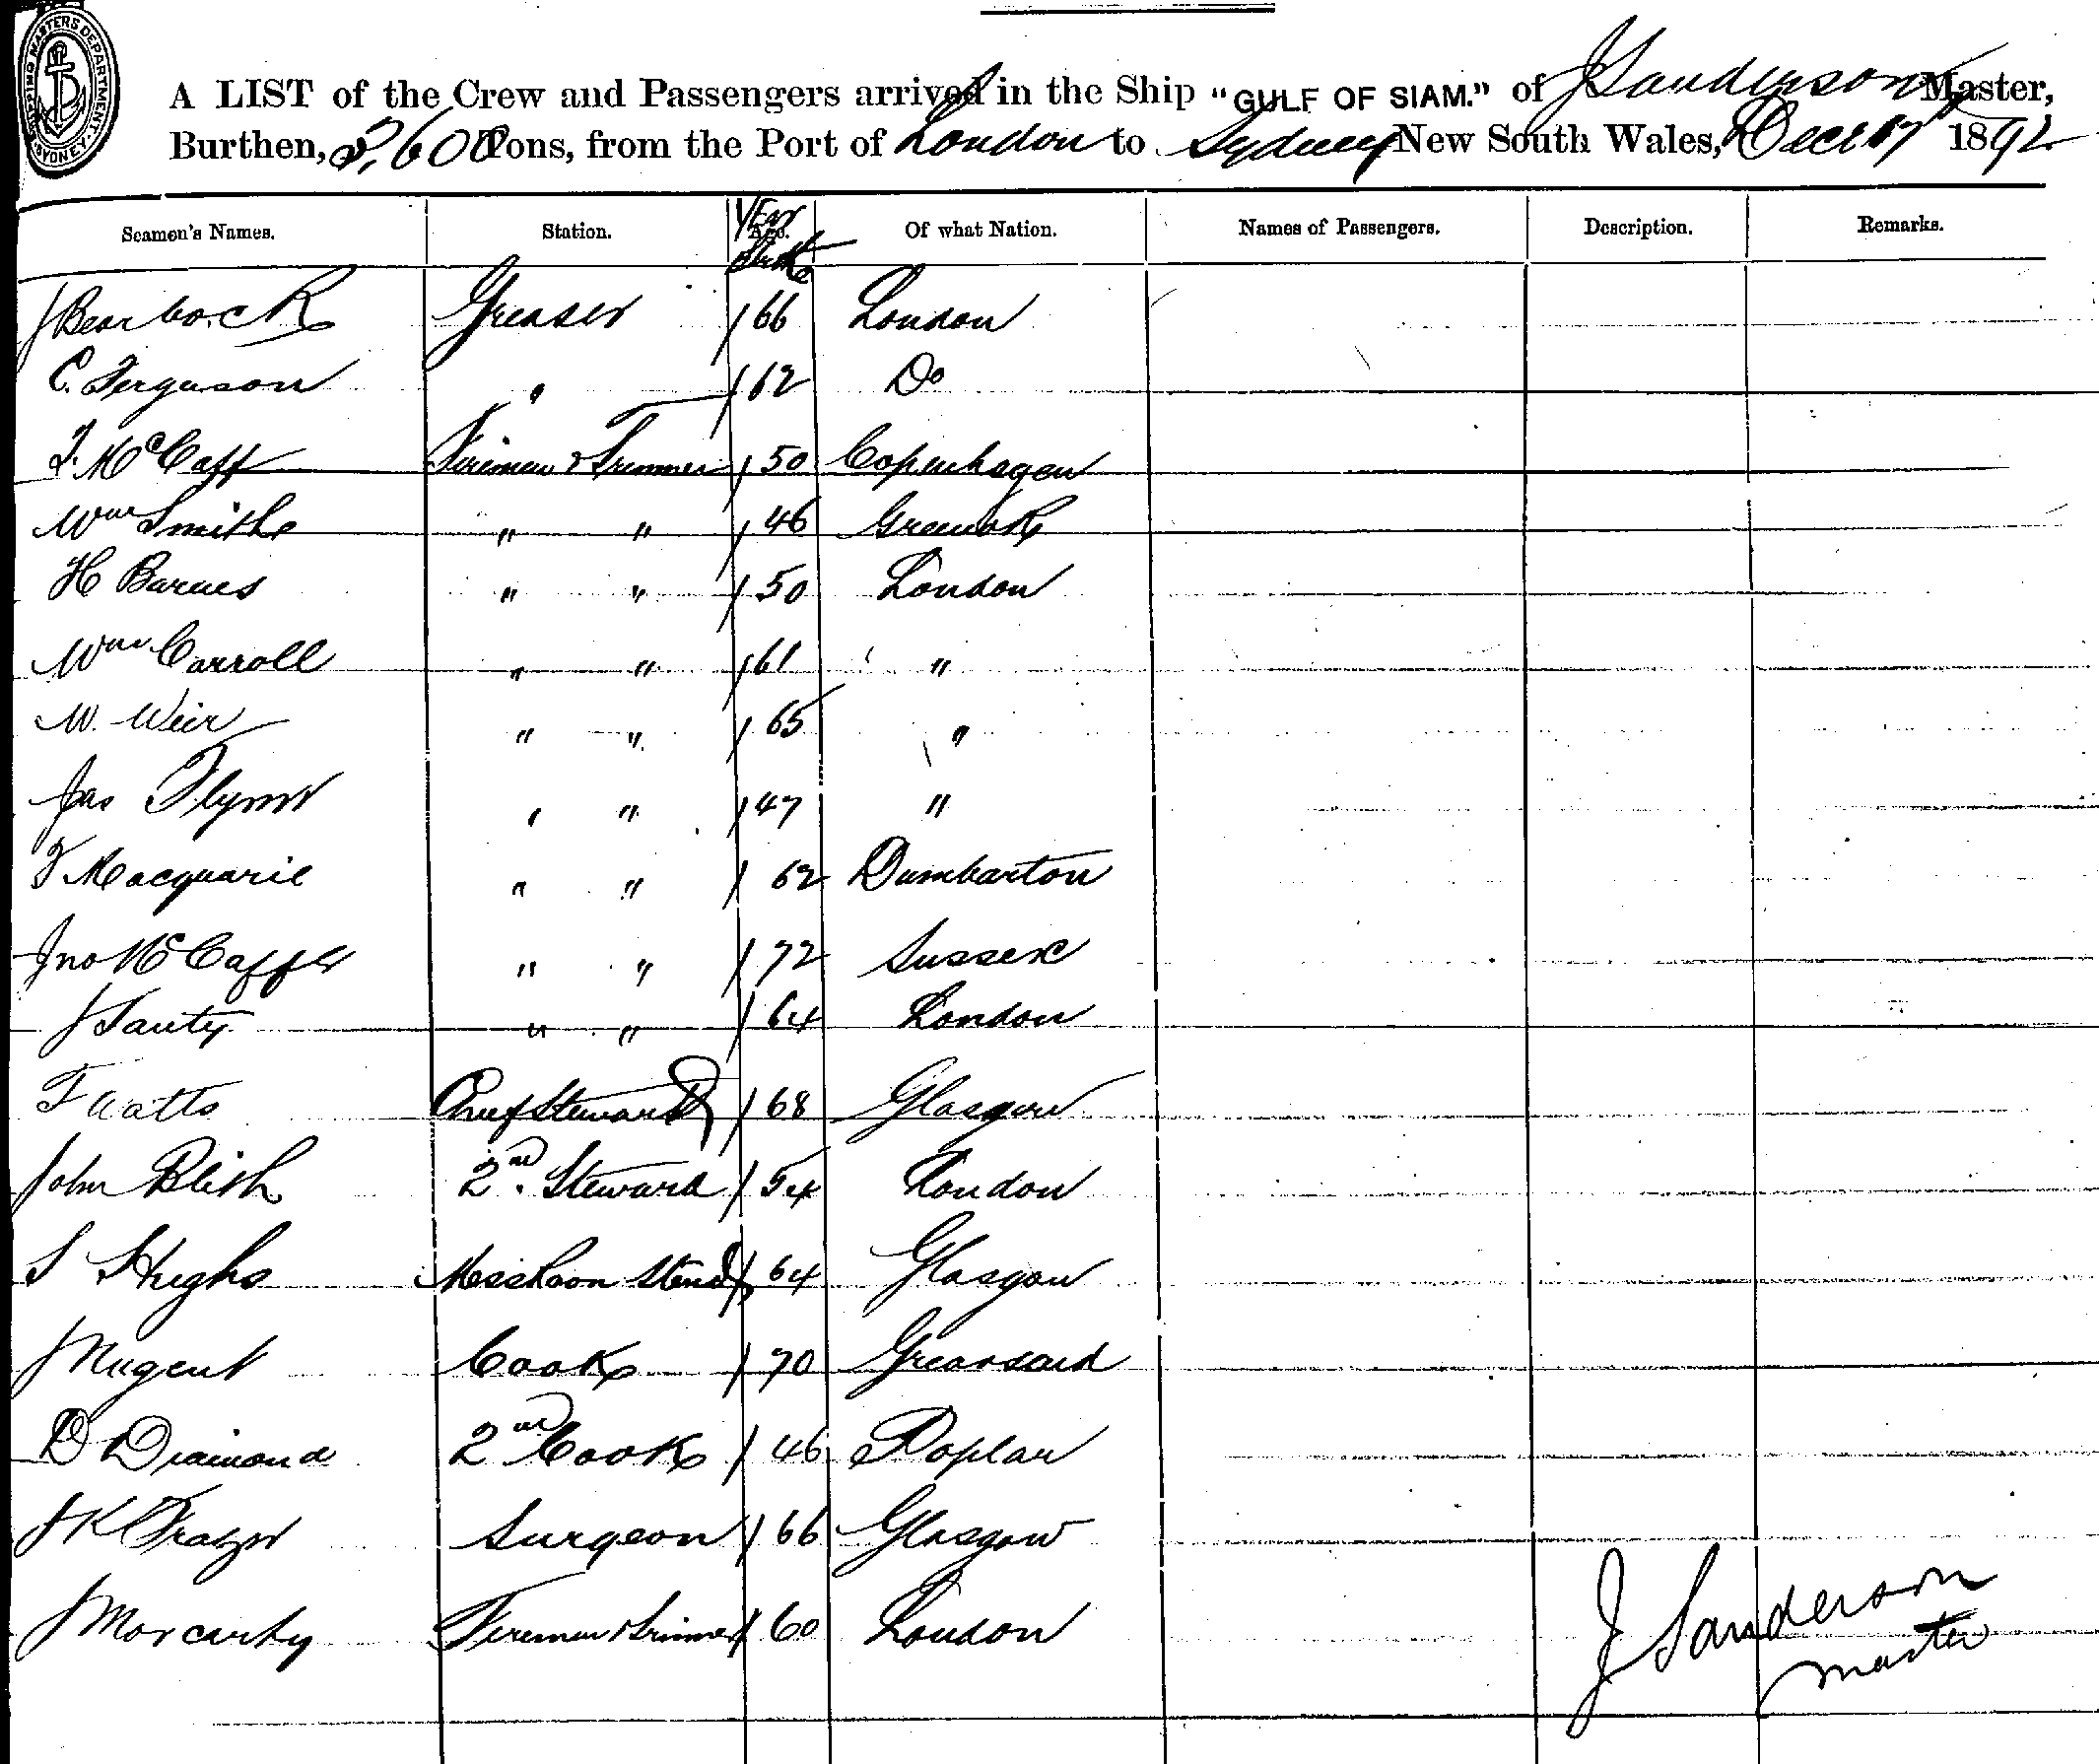 SHIPPING MASTERS DEPARTMENT SYDNEY
A LIST of the Crew and Passengers arrived in the Ship "GULF OF SIAM." of J Sanderson Master,
Burthen, 2,600 Tons, from the Port of London to Sydney New South Wales, Decr 17 1892
Seamen's Names. Station. Age. Year Birth Of what Nation. Names of Passengers. Description. Remarks.
J Bearbock Greaser / 66 London
C. Ferguson " / 62 Do
McCaff Fireman & Trimmer / 50 Copenhagen
Wm Smith " " / 46 Greenock
H Barnes " " / 50 London
Wm Carroll " " / 61 "
W. Weir " " / 65 "
Jas Flynn " " / 47 "
Macquarie " " / 62 Dumbarton
Jno McCaffer " " / 72 Sussex
J Tauty " " / 64 London
F Watts Chief Steward / 68 Glasgow
John Blish 2nd Steward / 54 London
S Hughs Messroom Stewd / 64 Glasgow
J Nugent Cook / 70
D Diamond 2nd Cook / 46 Poplar
J K Surgeon / 66 Glasgow
J Fireman & Trimmer / 60 London
J Sanderson
Master